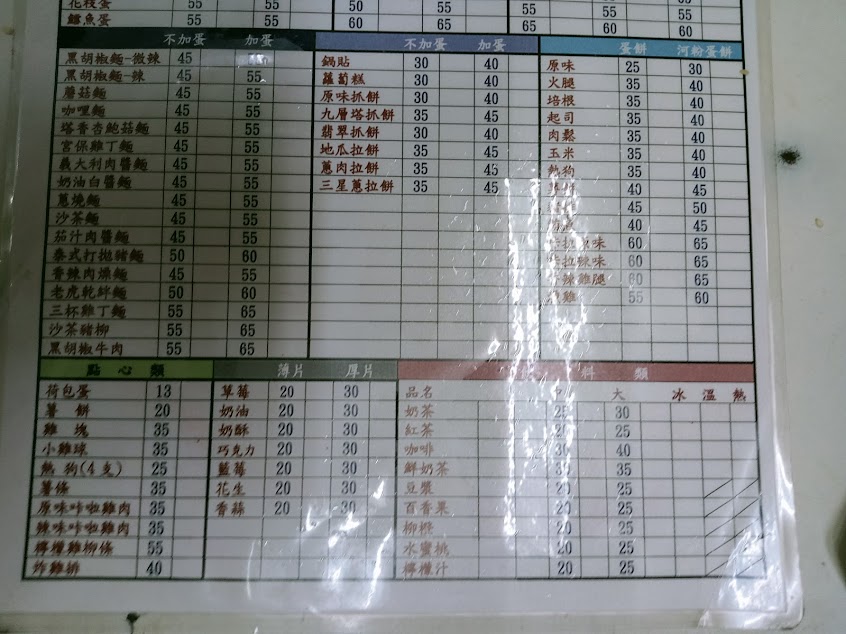 花枝蛋 55 55 50 55 55 55
鱈魚蛋 55 55 65 60 60
不加蛋 加蛋
黑胡椒麵-微辣 45
黑胡椒麵-辣 45 55
蘑菇麵 45 55
咖哩麵 45 55
塔香杏鮑菇麵 45 55
宮保雞丁麵 45 55
義大利肉醬麵 45 55
奶油白醬麵 45 55
蔥燒麵 45 55
沙茶麵 45 55
茄汁肉醬麵 45 55
泰式打拋豬麵 50 60
香辣肉燥麵 45 55
老虎乾絆麵 50 60
三杯雞丁麵 55 65
沙茶豬柳 55 65
黑胡椒牛肉 55 65
不加蛋 加蛋
鍋貼 30 40
蘿蔔糕 30 40
原味抓餅 30 40
九層塔抓餅 35 45
翡翠抓餅 30 40
地瓜拉餅 35 45
蔥肉拉餅 35 45
三星蔥拉餅 35 45
蛋餅 河粉蛋餅
原味 25 30
火腿 35 40
培根 35 40
起司 35 40
肉鬆 35 40
玉米 35 40
熱狗 35 40
40 45
45 50
40 45
味 60 65
拉辣味 60 65
辣雞腿 60 65
雞 55 60
點心類
荷包蛋 13
薯餅 20
雞塊 35
小雞球 35
熱狗(4支) 25
薯條 35
原味咔啦雞肉 35
辣味咔啦雞肉 35
檸檬雞柳條 55
炸雞排 40
薄片 厚片
草莓 20 30
奶油 20 30
奶酥 20 30
巧克力 20 30
藍莓 20 30
花生 20 30
香蒜 20 30
料 類
品名 中 大 冰 溫 熱
奶茶 25 30
紅茶 20 25
咖啡 30 40
鮮奶茶 30 35
豆漿 20 25
百香果 20 25
柳橙 20 25
水蜜桃 20 25
檸檬汁 20 25